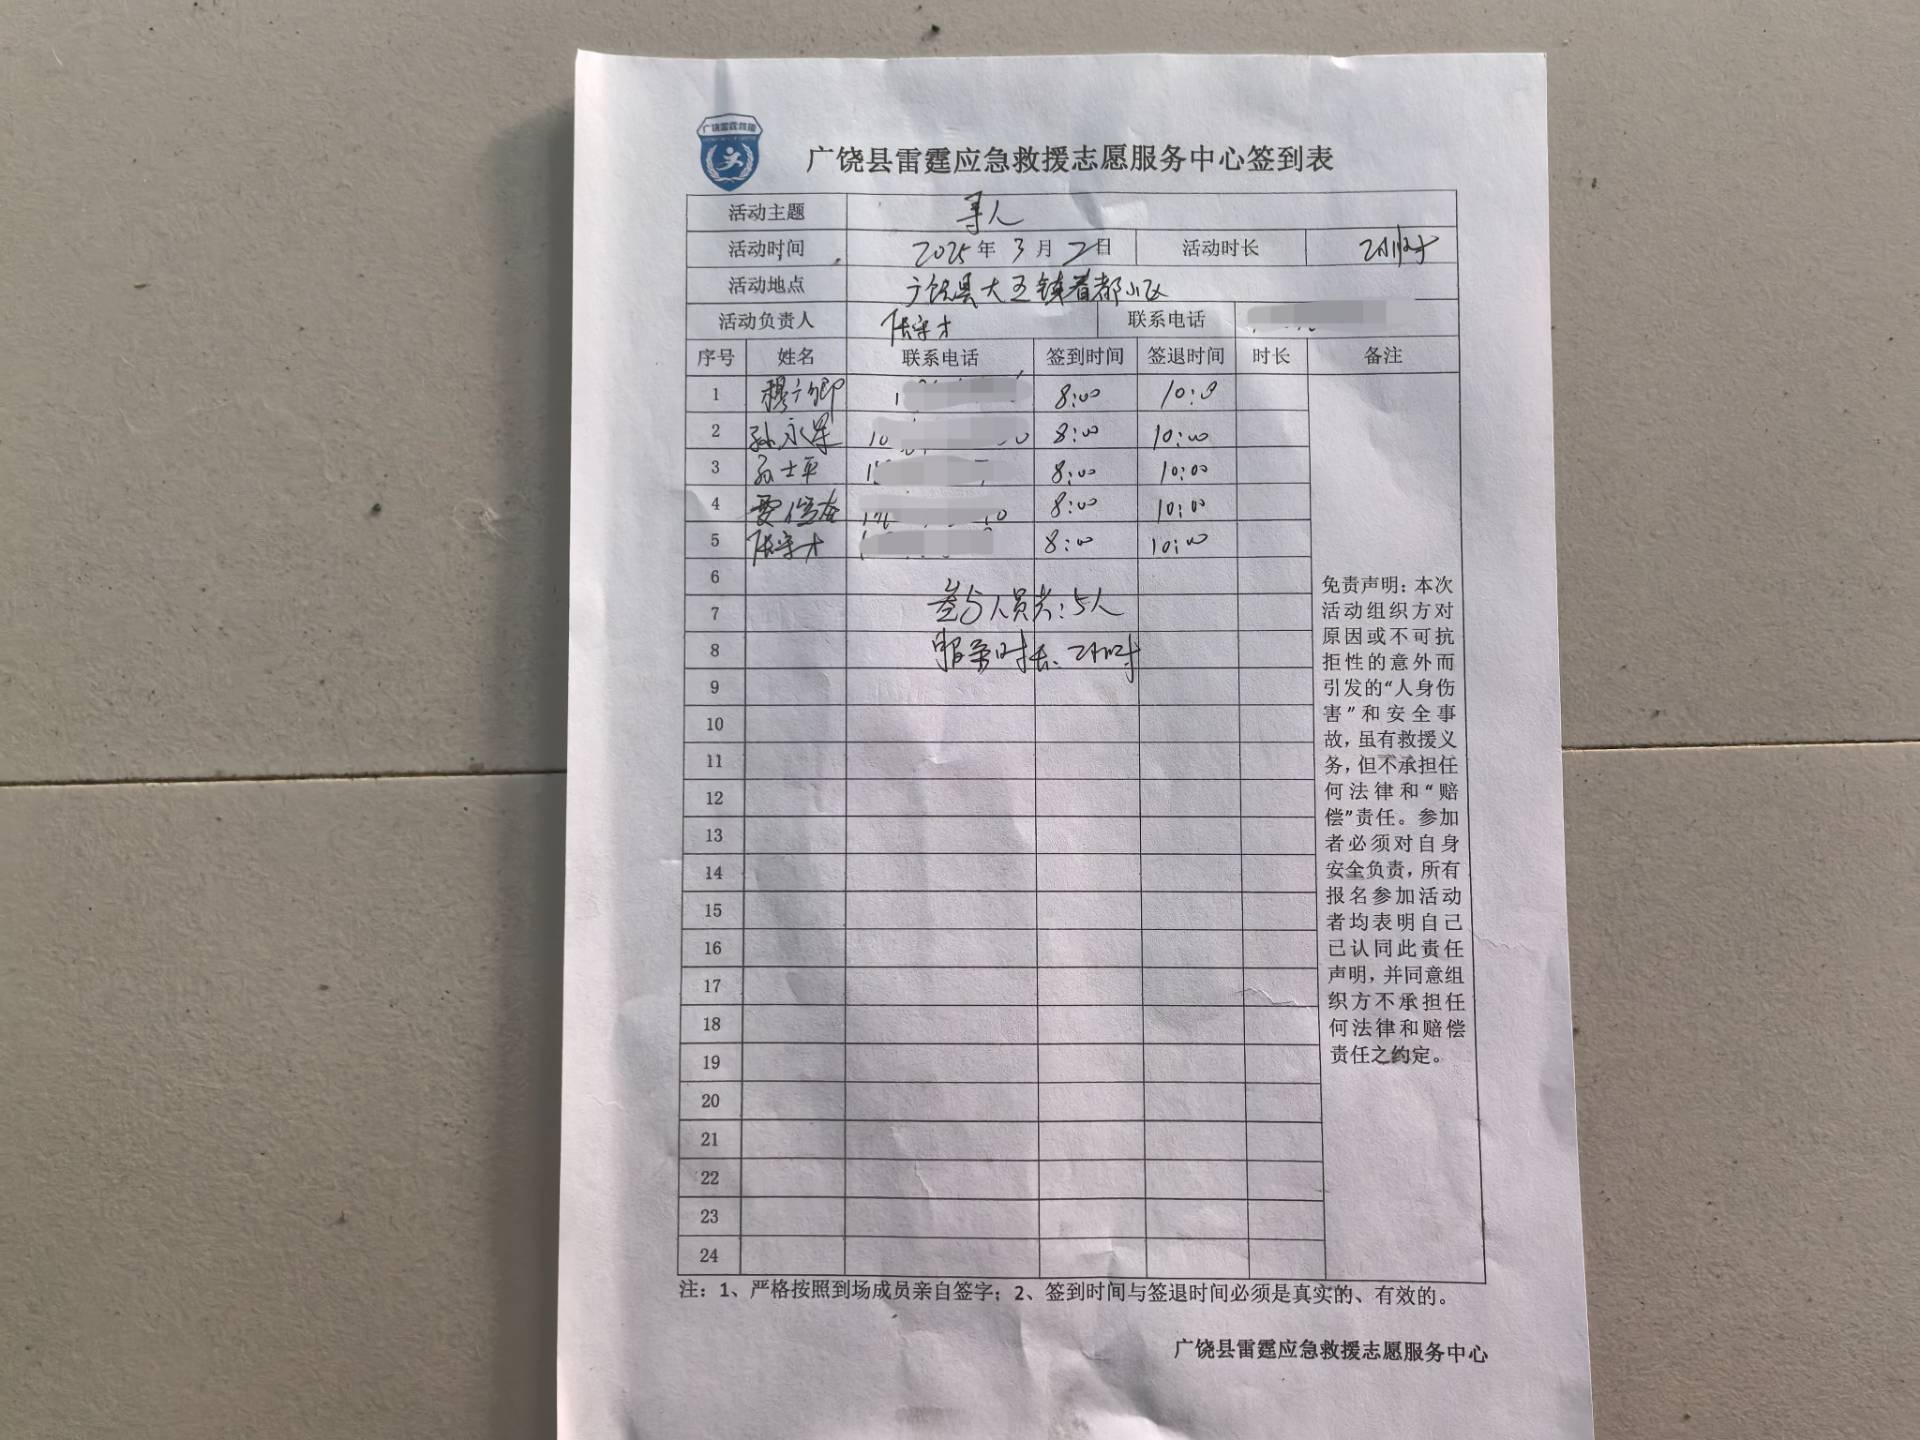 广饶雷霆救援
广饶县雷霆应急救援志愿服务中心签到表
活动主题 寻人
活动时间 2025年 3月 2日 活动时长 2小时
活动地点 广饶县大王镇 都小区
活动负责人 张宝才 联系电话
序号 姓名 联系电话 签到时间 签退时间 时长 备注
1 8:00 10:0
2 孙永军 8:00 10:00
3 孙士平 8:00 10:00
4 8:00 10:00
5 张宝才 8:00 10:00
6
7 参与人员共:5人
8 服务时长:2小时
9
10
11
12
13
14
15
16
17
18
19
20
21
22
23
24
免责声明:本次
活动组织方对
原因或不可抗
拒性的意外而
引发的“人身伤
害”和安全事
故,虽有救援义
务,但不承担任
何法律和“赔
偿”责任。参加
者必须对自身
安全负责,所有
报名参加活动
者均表明自己
已认同此责任
声明,并同意组
织方不承担任
何法律和赔偿
责任之约定。
注:1、严格按照到场成员亲自签字;2、签到时间与签退时间必须是真实的、有效的。
广饶县雷霆应急救援志愿服务中心